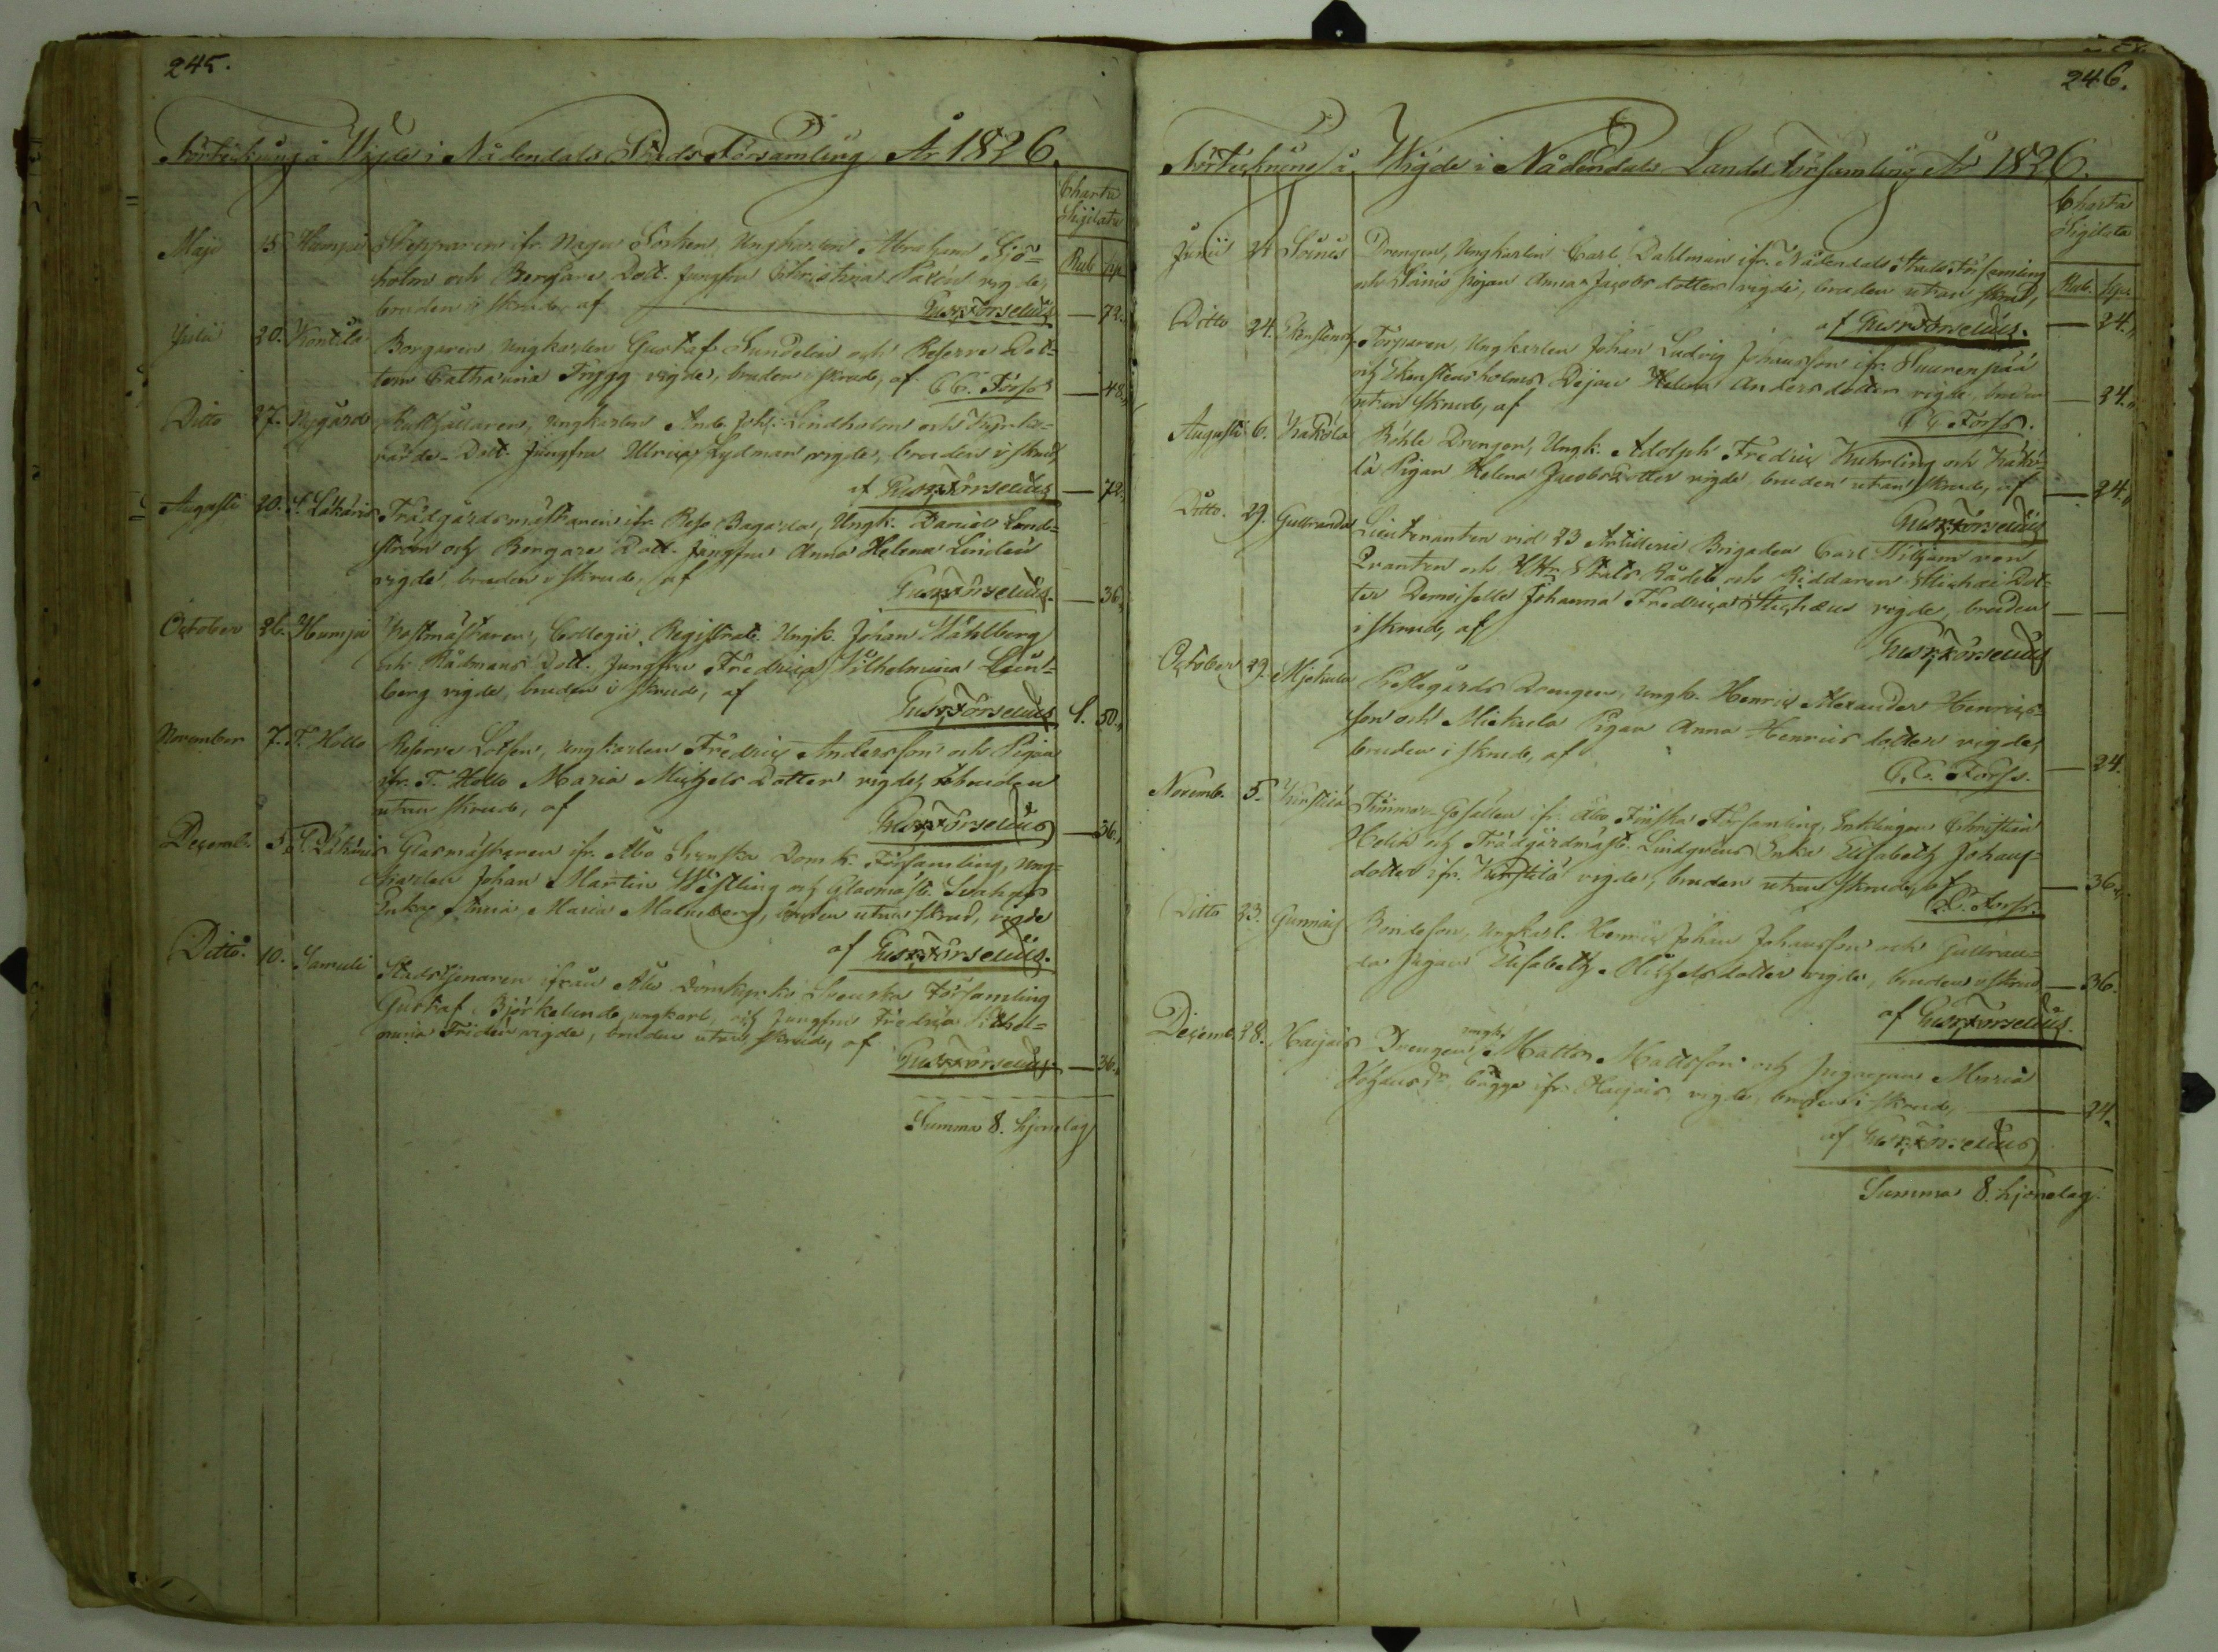 245.
Förteckning å Wigde i Nådendals Stads Församling År 1826.
Charta
Sigilata
Rub. kop.
Maji 15. Humpi Skepparen ifr. Nagu Socken, Ungkarlen Abraham Sjö=
holm och Borgare Dott. Jungfru Christina Palén vigde,
bruden i skrud, af Gust. Forselius — 72.
Julii 20. Kontila Borgaren, Ungkarlen Gustaf Sundelin och Reserve Dot=
tern Catharina Trygg vigde, bruden i skrud, af C.C. Forss. — 48.
Ditto 27. Nygård Ungkarlen And. Joh. Lindholm och Kyrko=
värde Dott. Jungfru Ulrica Lydman vigde, bruden i skrud,
af Gust. Forselius — 72.
Augusti 20. T. Lakáris Trädgårdsmästaren ifr. Reso Ungk. Daniel Lind=
ström och Borgare Dott. Jungfru Anna Helena Lindén
vigde, bruden i skrud, af Gust. Forselius. — 36.
October 26. Humpi Postmästaren, Collegii Registrat. Ungk. Johan Wåhlberg
och Rådmans Dott. Jungfru Fredrica Wilhelmina
berg vigde, bruden i skrud, af Gust. Forselius 1. 50.
November 7. T. Hollo Reserve Lotsen, Ungkarlen Fredric Andersson och Pigan
ifr. T. Hollo Maria Michels Dotter vigde, bruden
utan skrud, af Gust. Forselius — 36.
Decemb. 5. T. Lakáris Glasmästaren ifr. Åbo Svenska Domk. Församling, Ung=
karlen Johan Martin Westling och Glasmäst.
Enka Maria Malmberg, bruden utan skrud, vigde
af Gust. Forselius.
Ditto. 10. Samuli Stadstjenaren ifrån Åbo Domkyrko Svenska Församling
Gustaf Björkelund, ungkarl, och Jungfru Fredrica Wilhel=
mina Fridén vigde, bruden utan skrud, af
Gust. Forselius. — 36.
Summa 8. hjonelag
246.
Förteckning å Wigde i Nådendals Lands Församling År 1826.
Charta
Sigilata
Rub. kop.
Junii 21 Soinis Drengen, Ungkarlen Carl Dahlman ifr. Nådendals Stads Församling
och Soinis pigan Anna Jacobs dotter vigde, bruden utan skrud,
af Gust. Forselius. — 24.
Ditto 24. Torparen, Ungkarlen Johan Ludvig Johansson ifr. Suurenpää
och Ekenstensholms Dejan Helena Anders dotter vigde, bruden
utan skrud, af C.C. Forss. — 24.
Augusti 6. Kaköla Röhle Drengen, Ungk. Adolph Fredric Kuhrling och Kakö=
la Pigan Helena Jacobs Dotter vigde, bruden utan skrud, af
Gust. Forselius — 24.
Ditto. 29. Gullranda Lieutenanten vid 23 Artillerie Brigaden Carl Wilhjam von
Qvanten och H:Hr Stats Rådet och Riddaren Dot=
ter Demoiselle Johanna Fredrica vigde, bruden
i skrud, af Gust. Forselius
October 29. Mickula Prestgårds Drengen, Ungk. Henric Alexander Henrics=
son och Mickula Pigan Anna Henrics dotter vigde,
bruden i skrud, af C.C. Forss. — 24.
Novemb. 5. Timmar-Gesellen ifr. Åbo Finska Församling, Enklingen Christian
Helin och Trädgårdmäst. Lindqvists Enka Elisabeth Johans=
dotter ifr. vigde, bruden utan skrud, af C.C. Forss. — 36.
Ditto 23. Gunnais Bondeson, Ungkarl. Henric Johan Johansson och Gullran=
da Pigan Elisabeth Michelsdotter vigde, bruden i skrud — 36.
af Gust. Forselius.
Decemb. 28. Haijais Drengen, ungk. Matts Mattsson och Inhyses Maria
Johans Dr bägge ifr. Haijais vigde, bruden i skrud, — 24.
af Gust. Forselius
Summa 8. hjonelag.